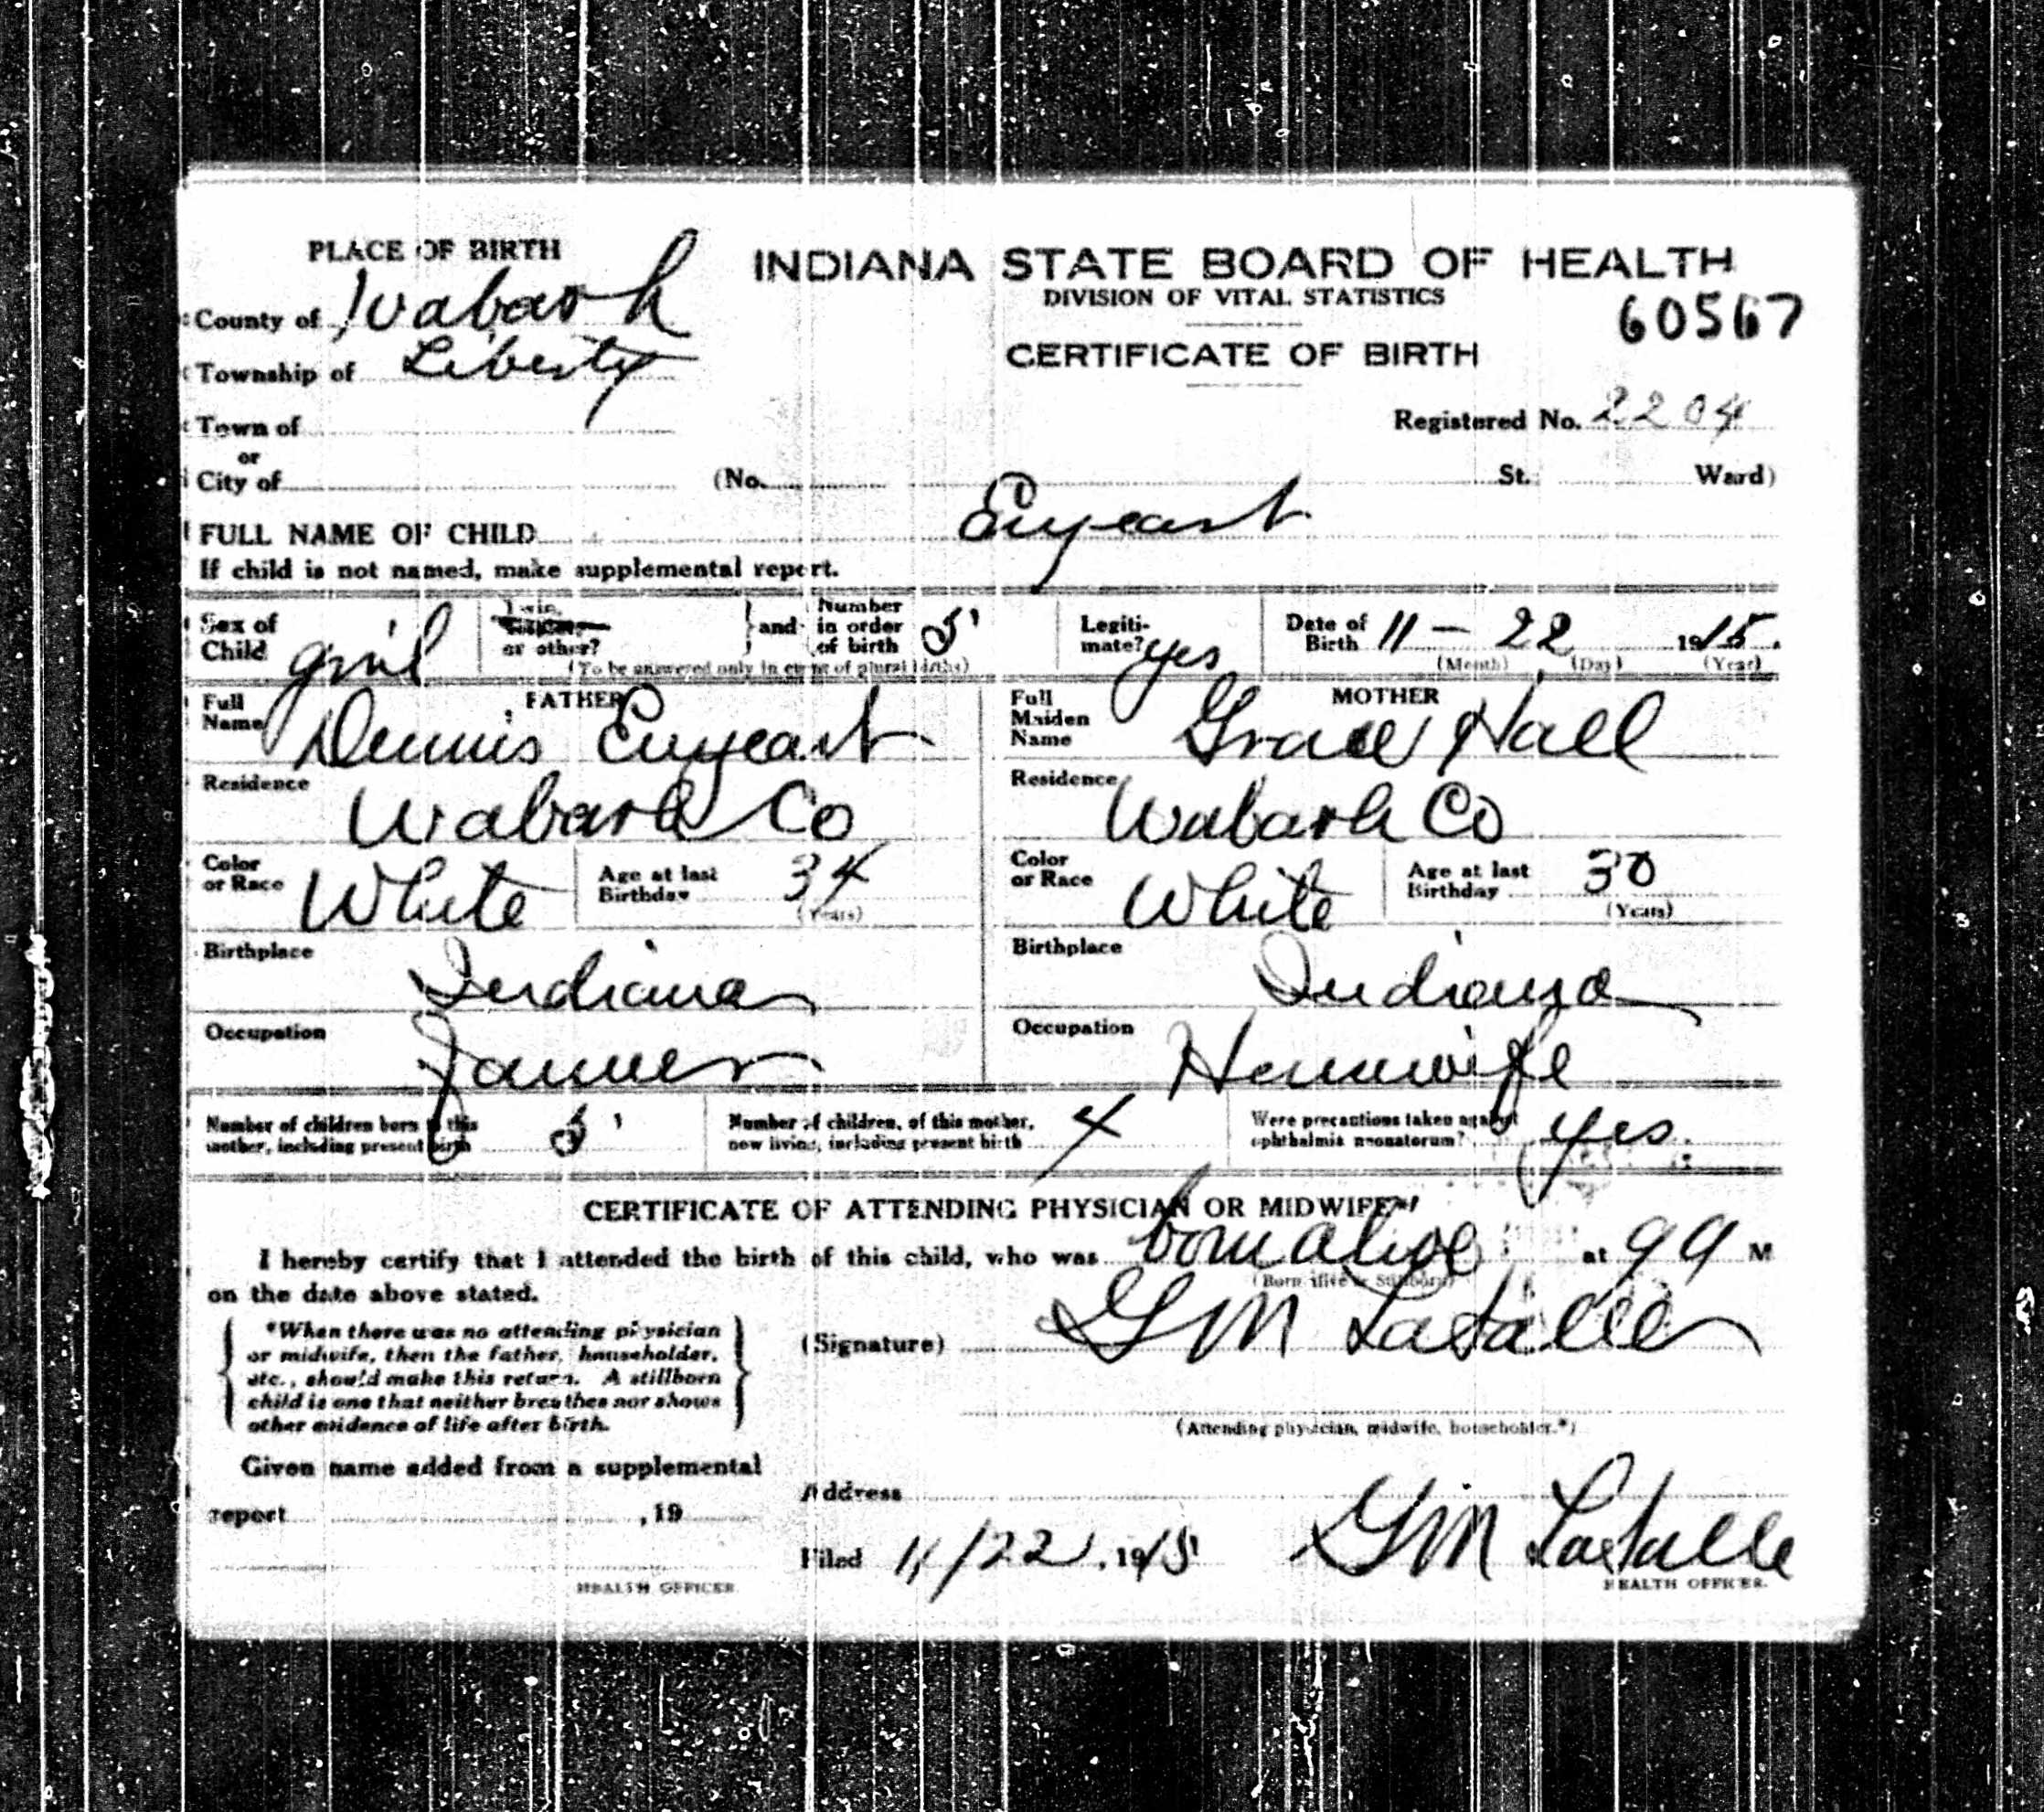 PLACE OF BIRTH
INDIANA STATE BOARD OF HEALTH
DIVISION OF VITAL STATISTICS
60567
County of Wabash
CERTIFICATE OF BIRTH
Township of Liberty
Town of
Registered No. 2204
or
City of (No. St. Ward)
FULL NAME OF CHILD Enyeart
If child is not named, make supplemental report.
Sex of Child girl
Twin, or other?
and Number in order of birth 5
(To be answered only in event of plural births)
Legitimate? yes
Date of Birth 11 - 22 1915.
(Month) (Day) (Year)
FATHER
Full Name Dennis Enyeart
MOTHER
Full Maiden Name Grace Hall
Residence Wabash Co
Residence Wabash Co
Color or Race White
Age at last Birthday 34
(Years)
Color or Race White
Age at last Birthday 30
(Years)
Birthplace Indiana
Birthplace Indiana
Occupation Farmer
Occupation Housewife
Number of children born to this mother, including present birth 5
Number of children, of this mother, now living, including present birth 4
Were precautions taken against ophthalmia neonatorum? yes
CERTIFICATE OF ATTENDING PHYSICIAN OR MIDWIFE*
I hereby certify that I attended the birth of this child, who was born alive at 9 M
(Born alive or Stillborn)
on the date above stated.
*When there was no attending physician
or midwife, then the father, householder,
etc., should make this return. A stillborn
child is one that neither breathes nor shows
other evidence of life after birth.
(Signature) G M LaSalle
(Attending physician, midwife, householder.*)
Given name added from a supplemental
report , 19
HEALTH OFFICER
Address
Filed 11/22, 1915 G M LaSalle
HEALTH OFFICER.